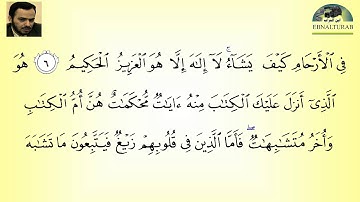 EBNALTURAB
فِي ٱلْأَرْحَامِ كَيْفَ يَشَآءُ ۚ لَآ إِلَٰهَ إِلَّا هُوَ ٱلْعَزِيزُ ٱلْحَكِيمُ ٦ هُوَ
ٱلَّذِىٓ أَنزَلَ عَلَيْكَ ٱلْكِتَٰبَ مِنْهُ ءَايَٰتٌ مُّحْكَمَٰتٌ هُنَّ أُمُّ ٱلْكِتَٰبِ
وَأُخَرُ مُتَشَٰبِهَٰتٌ ۖ فَأَمَّا ٱلَّذِينَ فِى قُلُوبِهِمْ زَيْغٌ فَيَتَّبِعُونَ مَا تَشَٰبَهَ